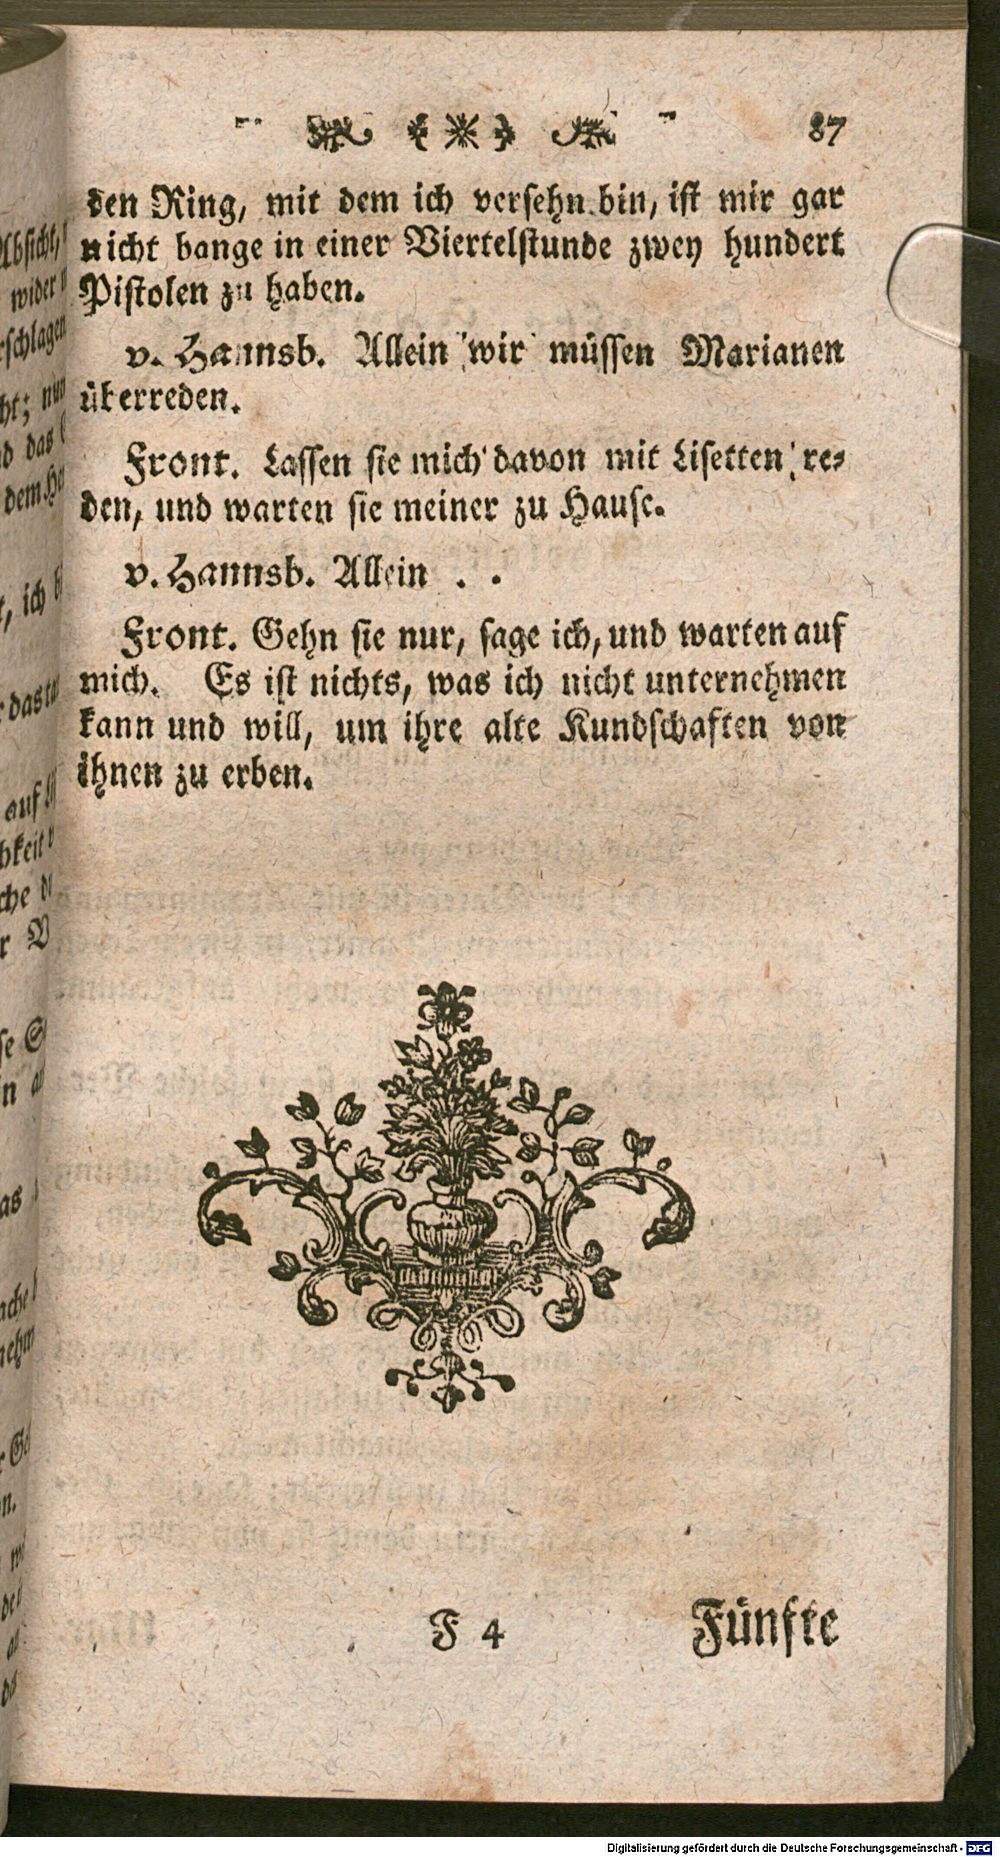 87
den Ring, mit dem ich versehn bin, ist mir gar
nicht bange in einer Viertelstunde zwey hundert
Pistolen zu haben.
v. Hannsb. Allein wir müssen Marianen
überreden.
Front. Lassen sie mich davon mit Lisetten re-
den, und warten sie meiner zu Hause.
v. Hannsb. Allein . .
Front. Gehn sie nur, sage ich, und warten auf
mich. Es ist nichts, was ich nicht unternehmen
kann und will, um ihre alte Kundschaften von
ihnen zu erben.
F 4 Fünfte
Digitalisierung gefördert durch die Deutsche Forschungsgemeinschaft - DFG